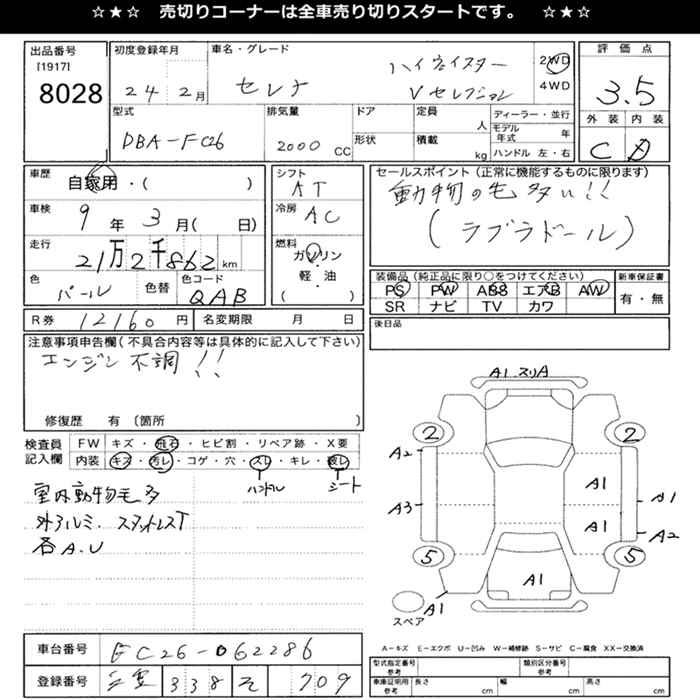 ☆★☆ 売切りコーナーは全車売り切りスタートです。 ☆★☆
出品番号
[1917]
8028
初度登録年月
24 2月
車名・グレード
セレナ
ハイウェイスター
Vセレクション
2WD
4WD
評価点
3.5
外装 内装
C D
型式
DBA-FC26
排気量
2000 CC
ドア
形状
定員
人
積載
kg
ディーラー・並行
モデル年式 年
ハンドル 左・右
車歴
自家用・( )
車検
9年 3月( 日)
走行
21万2千862 km
色
パール
色替
色コード
QAB
シフト
AT
冷房
AC
燃料
ガソリン
軽・油
( )
セールスポイント(正常に機能するものに限ります)
動物の毛多い!!
(ラブラドール)
装備品(純正品に限り○をつけてください)
PS PW ABS エアB AW
SR ナビ TV カワ
新車保証書
有・無
R券 12160円
名変期限 月 日
後日品
注意事項申告欄(不具合内容等は具体的に記入して下さい)
エンジン不調!!
修復歴 有(箇所 )
検査員
記入欄
FW キズ・飛石・ヒビ割・リペア跡・X要
内装 キズ・汚レ・コゲ・穴・スレ・キレ・破レ
ハンドル シート
室内動物毛多
外アルミ、スタットレスT
各A.U
A1 スリA
2 2
A2
A3
A1
A1
A1
A2
5 5
A1
A1
スペア
A-キズ E-エクボ U-凹み W-補修跡 S-サビ C-腐食 XX-交換済
車台番号
FC26-062286
登録番号
338
709
型式指定番号
参考
類別区分番号
参考
車庫証明用
参考
長さ cm
幅 cm
高さ cm